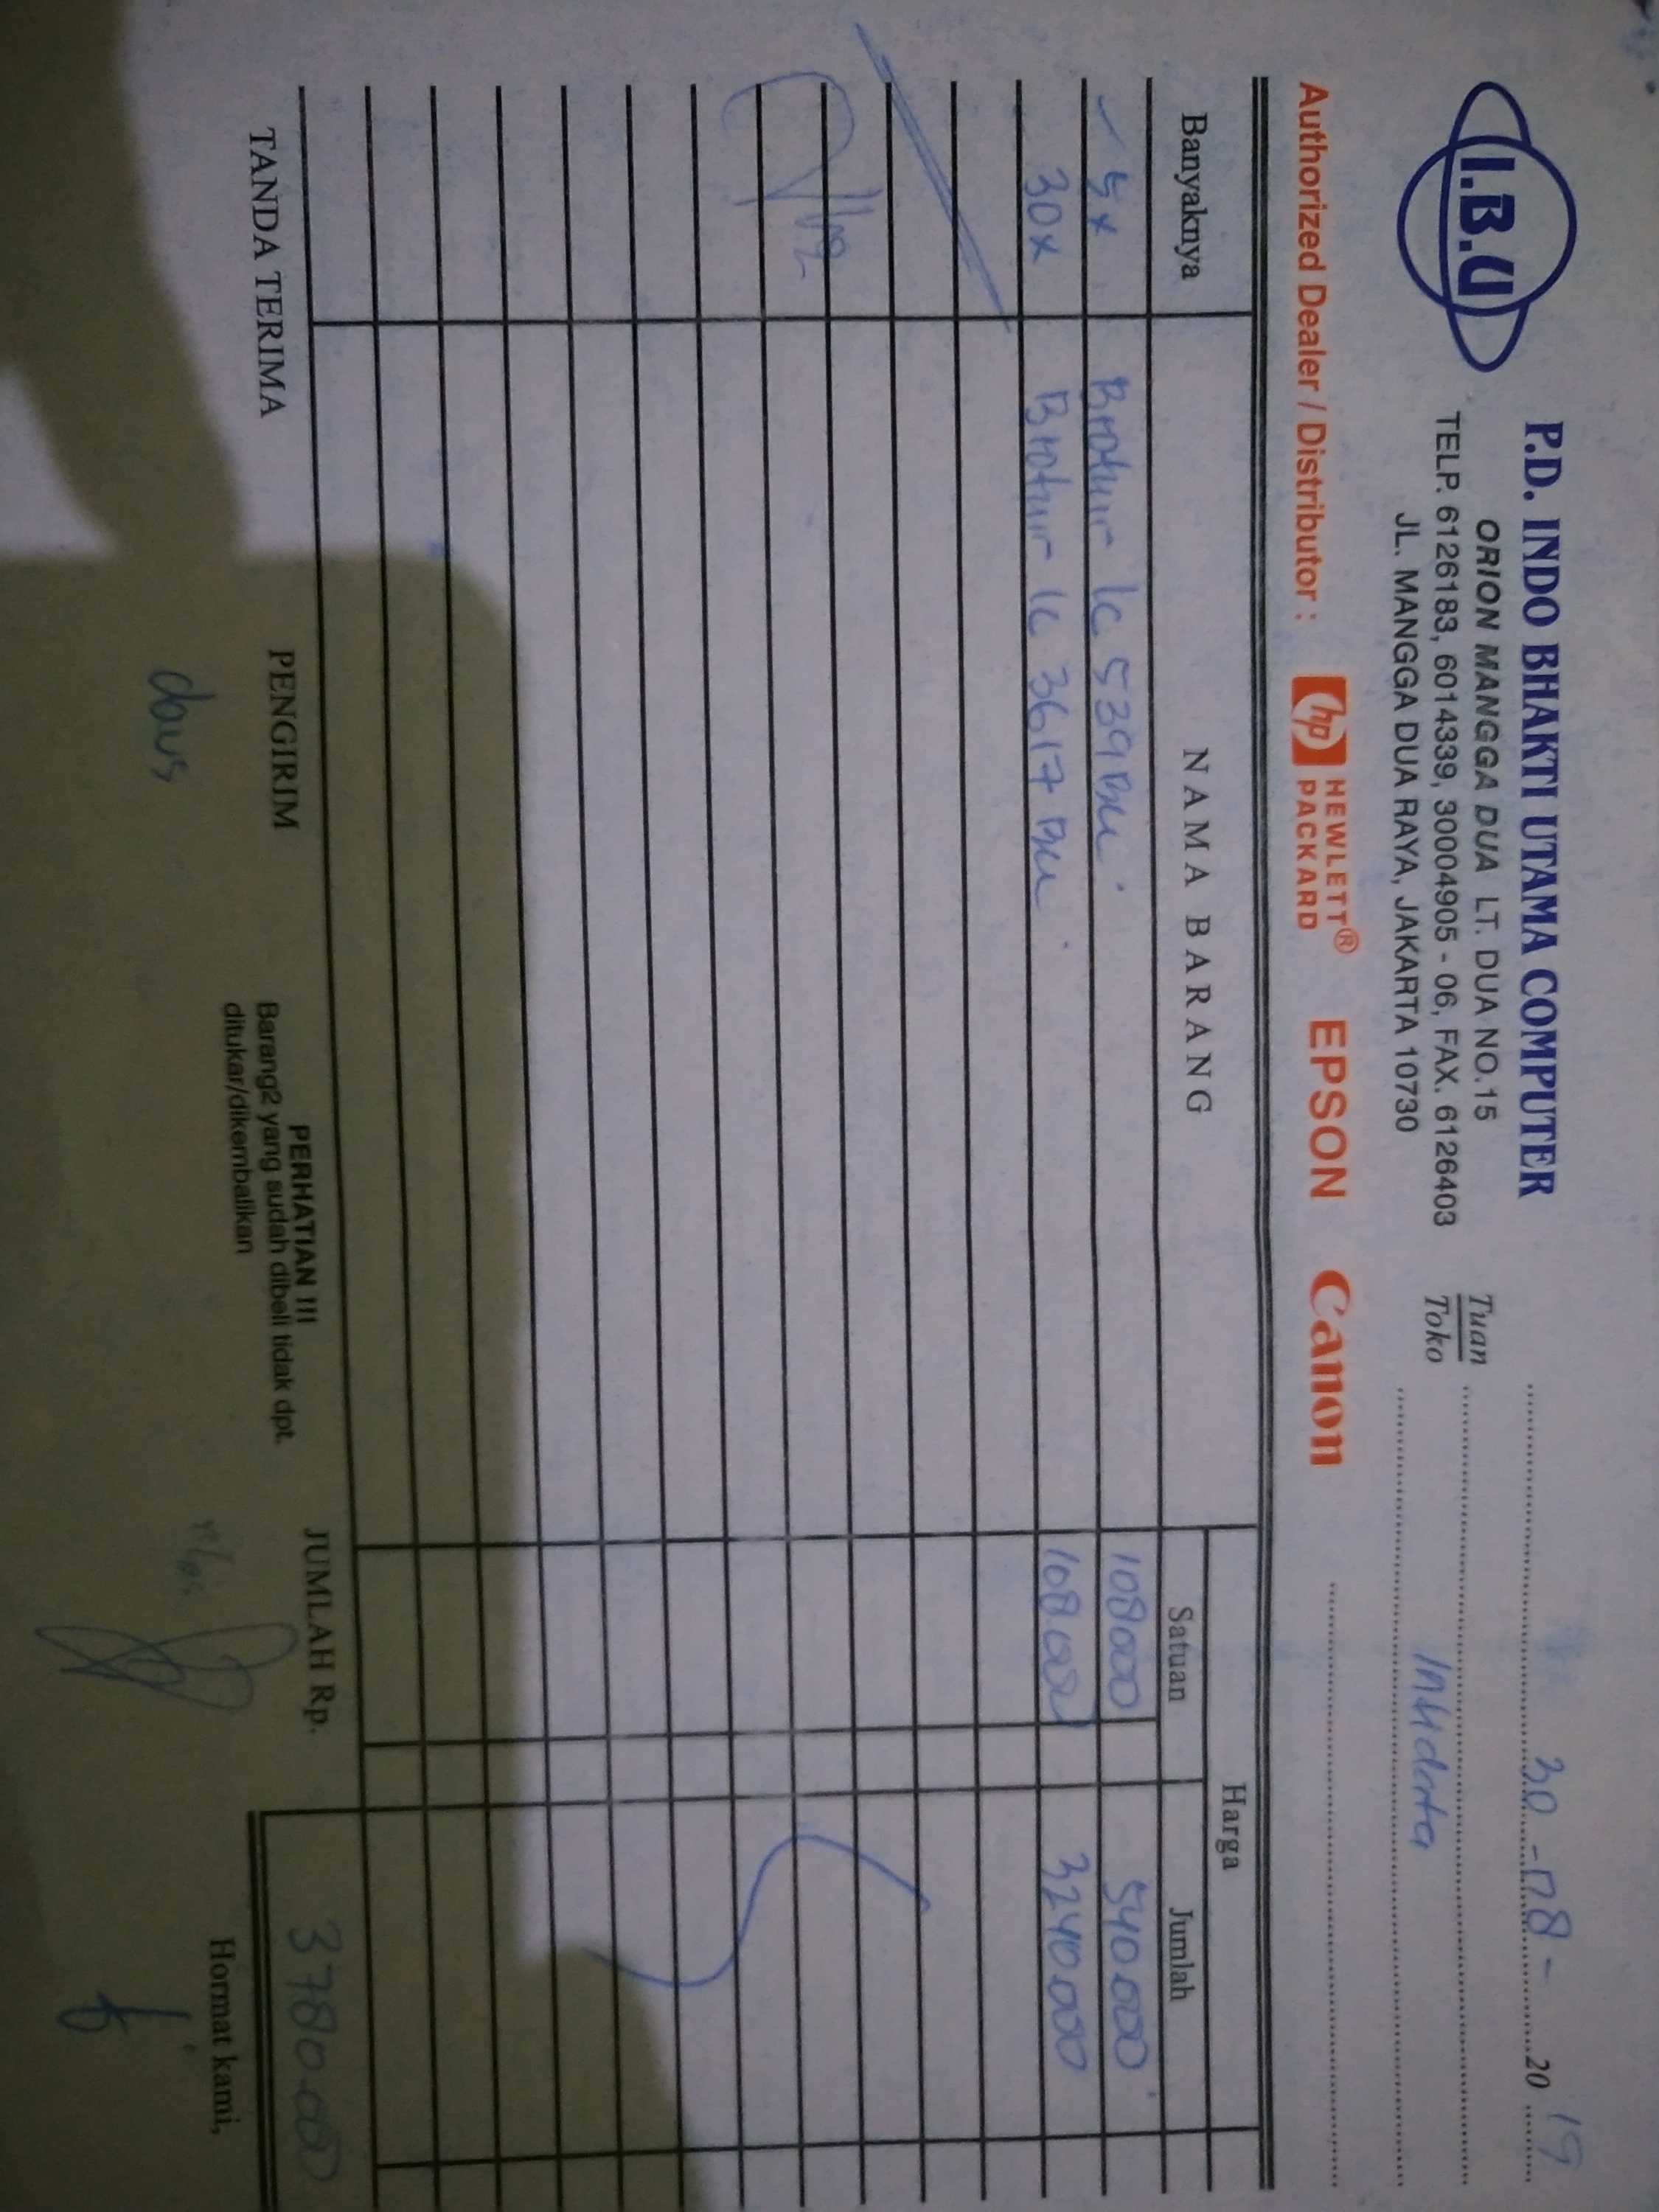 I.B.U
P.D. INDO BHAKTI UTAMA COMPUTER
ORION MANGGA DUA LT. DUA NO.15
TELP. 6126183, 6014339, 30004905 - 06, FAX. 6126403
JL. MANGGA DUA RAYA, JAKARTA 10730
30 - 08 - 20 19
Tuan
Toko
Authorized Dealer / Distributor : hp HEWLETT® PACKARD EPSON Canon
Banyaknya NAMA BARANG Harga
Satuan Jumlah
5x 108000 540.000
30x 108.000 3240.000
TANDA TERIMA PENGIRIM
PERHATIAN !!!
Barang2 yang sudah dibeli tidak dpt.
ditukar/dikembalikan
JUMLAH Rp. 3780.000
Hormat kami,